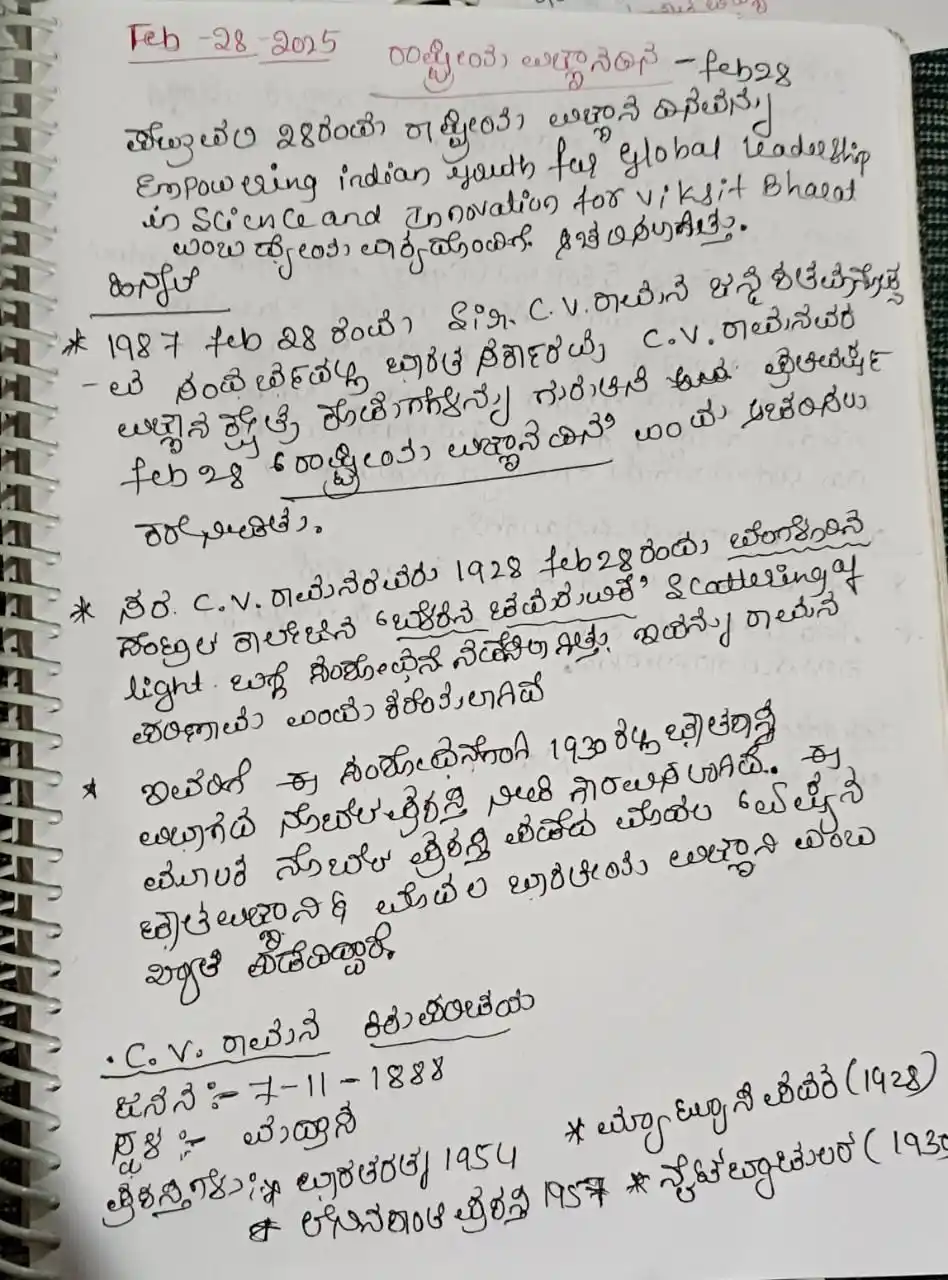 Feb -28 -2025
ರಾಷ್ಟ್ರೀಯ ವಿಜ್ಞಾನ ದಿನ - feb 28
28ರಂದು ರಾಷ್ಟ್ರೀಯ ವಿಜ್ಞಾನ ದಿನವನ್ನು
Empowering indian youth for global leadership
in Science and Innovation for Viksit Bharat
ಎಂಬ ಧ್ಯೇಯ ವಾಕ್ಯದೊಂದಿಗೆ ಆಚರಿಸಲಾಗಿತ್ತು.
ಹಿನ್ನೆಲೆ
* 1987 feb 28 ರಂದು ಸರ್. C.V. ರಾಮನ ಜನ್ಮ ಶತಮಾನೋತ್ಸ
- ವ ಸಂದರ್ಭದಲ್ಲಿ ಭಾರತ ಸರ್ಕಾರವು C.V. ರಾಮನವರ
ವಿಜ್ಞಾನ ಕ್ಷೇತ್ರ ಕೊಡುಗೆಗಳನ್ನು ಗುರುತಿಸಿ ಪ್ರತಿವರ್ಷ
feb 28 'ರಾಷ್ಟ್ರೀಯ ವಿಜ್ಞಾನ ದಿನ' ಎಂದು ಆಚರಿಸಲು
ಕರೆ ನೀಡಿತು.
* ಸರ. C.V. ರಾಮನರವರು 1928 feb 28 ರಂದು ಬೆಂಗಳೂರಿನ
ಸೆಂಟ್ರಲ ಕಾಲೇಜಿನ 'ಬೆಳಕಿನ ಚದುರುವಿಕೆ' Scattering of
light ಬಗ್ಗೆ ಸಂಶೋಧನೆ ನಡೆಸಲಾಗಿತ್ತು. ಇದನ್ನು ರಾಮನ
ಪರಿಣಾಮ ಎಂದು ಕರೆಯಲಾಗಿದೆ
* ಇವರಿಗೆ ಈ ಸಂಶೋಧನೆಗಾಗಿ 1930 ರಲ್ಲಿ ಭೌತಶಾಸ್ತ್ರ
ವಿಭಾಗದ ನೊಬೆಲ ಪ್ರಶಸ್ತಿ ನೀಡಿ ಗೌರವಿಸಲಾಗಿದೆ. ಈ
ಮೂಲಕ ನೊಬೆಲ ಪ್ರಶಸ್ತಿ ಪಡೆದ ಮೊದಲ 'ಏಷ್ಯನ
ಭೌತವಿಜ್ಞಾನಿ & ಮೊದಲ ಭಾರತೀಯ ವಿಜ್ಞಾನಿ ಎಂಬ
ಖ್ಯಾತಿ ಪಡೆದಿದ್ದಾರೆ.
. C. V. ರಾಮನ ಕಿರು ಪರಿಚಯ
ಜನನ :- 7-11-1888
ಸ್ಥಳ :- ಮದ್ರಾಸ
ಪ್ರಶಸ್ತಿಗಳು :* ಭಾರತರತ್ನ 1954 * ಮ್ಯಾಟ್ಯೂಸಿ ಪದಕ (1928)
* ಲೆನಿನ ಶಾಂತಿ ಪ್ರಶಸ್ತಿ 1957 * ನೈಟ ಬ್ಯಾಚುಲರ (1930